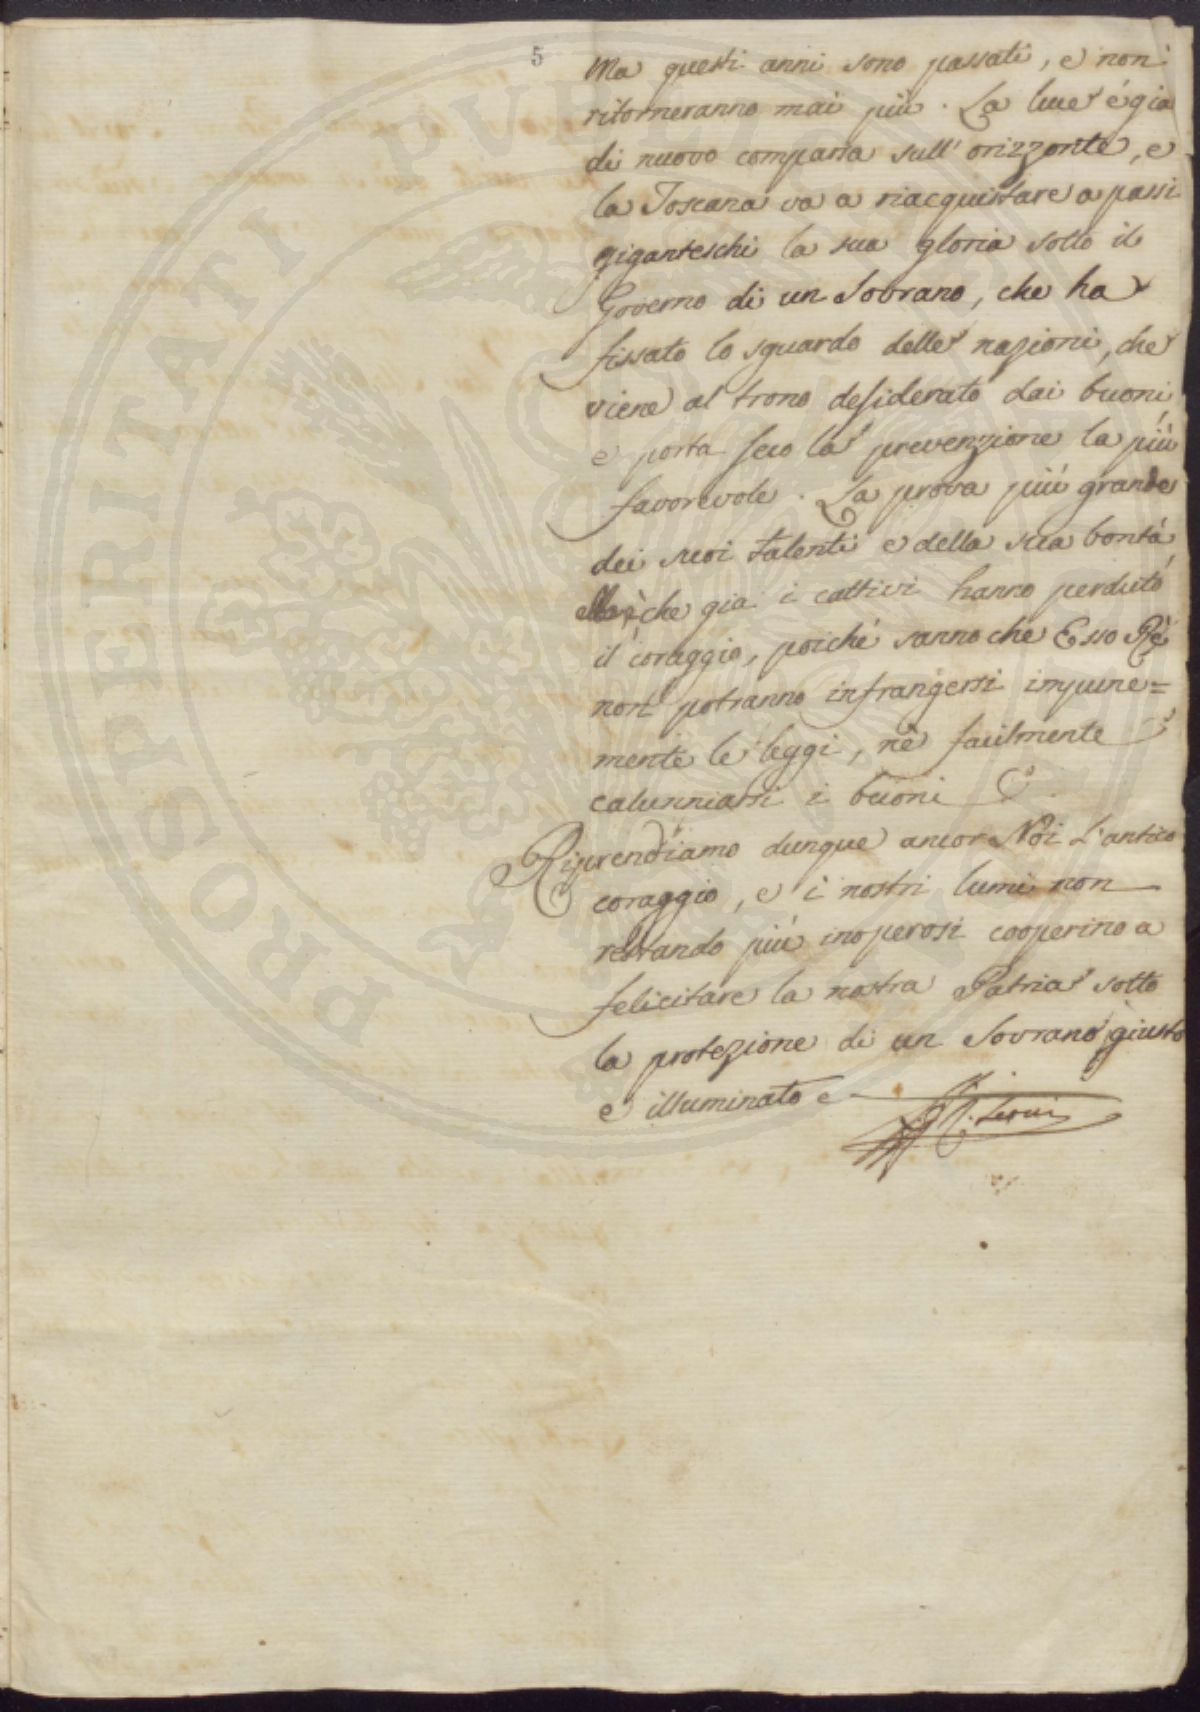 5
Ma questi anni sono passati, e non
ritorneranno mai più. La luce é gia
di nuovo comparsa sull' orizzonte, e
la Toscana va a riacquistare a passi
giganteschi la sua gloria sotto il
Governo di un Sovrano, che ha
fissato lo sguardo delle nazioni, che
viene al trono desiderato dai buoni
e porta seco la prevenzione la più
favorevole. La prova più grande
dei suoi talenti e della sua bontà
è che gia i cattivi hanno perduto
il coraggio, poiché sanno che Esso Rè
non potranno infrangersi impune=
mente le leggi, nè facilmente
calunniarsi i buoni
Riprendiamo dunque ancor Noi L'antico
coraggio, e i nostri lumi non
restando più inoperosi cooperino a
felicitare la nostra Patria sotto
la protezione di un Sovrano giusto
e illuminato
PROSPERITATI PUBLICAE